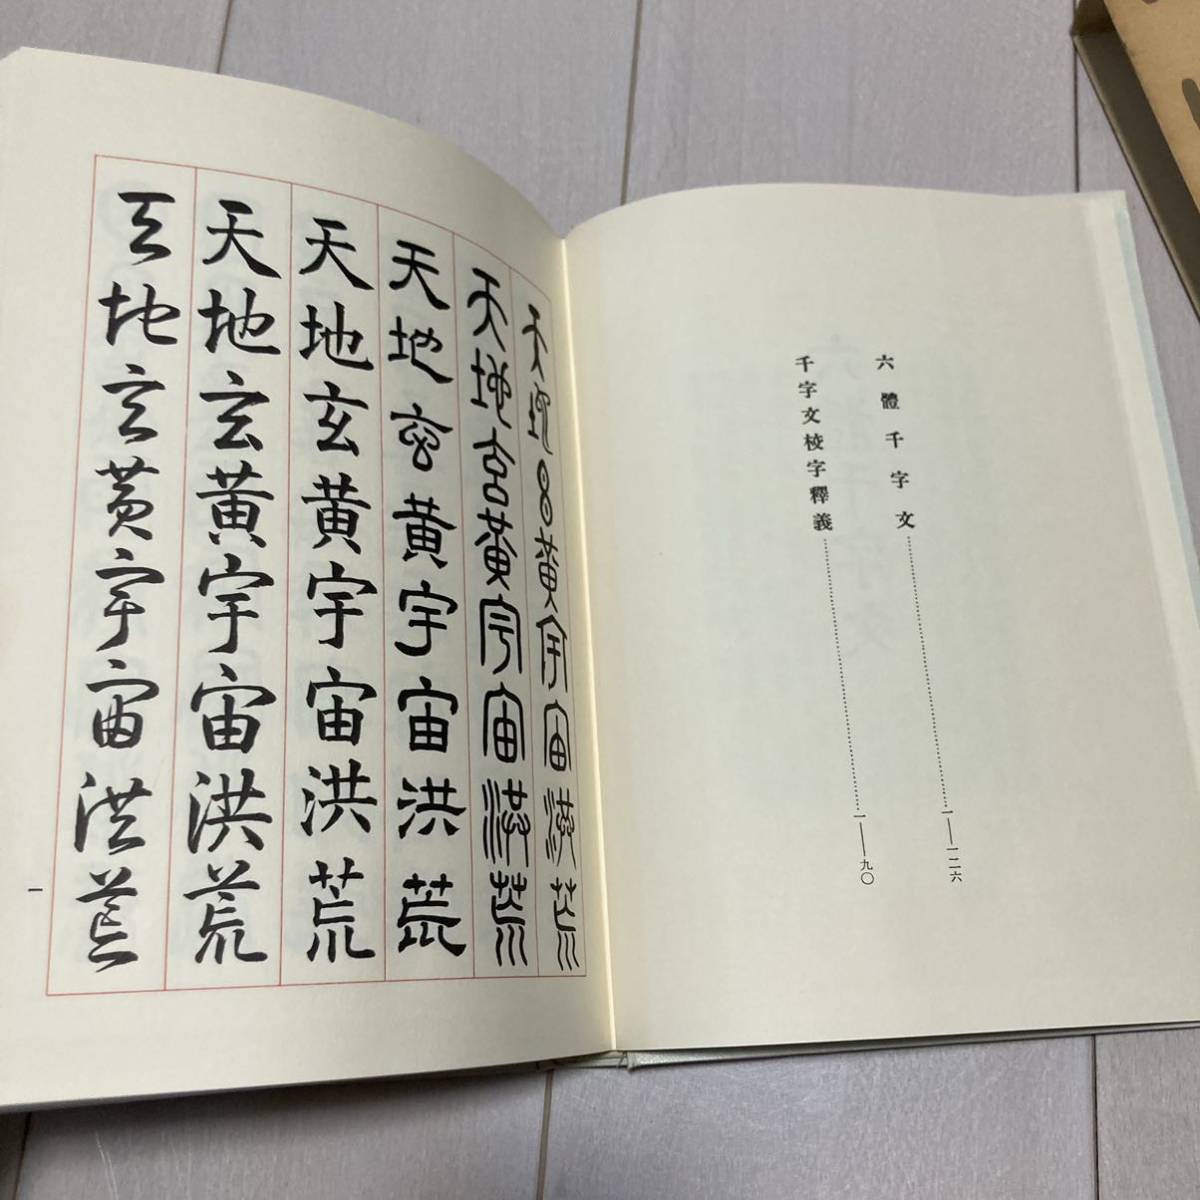 六體千字文……一—一二六
千字文校字釋義……一—九〇
天地玄黃宇宙洪荒
天地玄黃宇宙洪荒
天地玄黃宇宙洪荒
天地玄黃宇宙洪荒
天地玄黃宇宙洪荒
天地玄黃宇宙洪荒
一